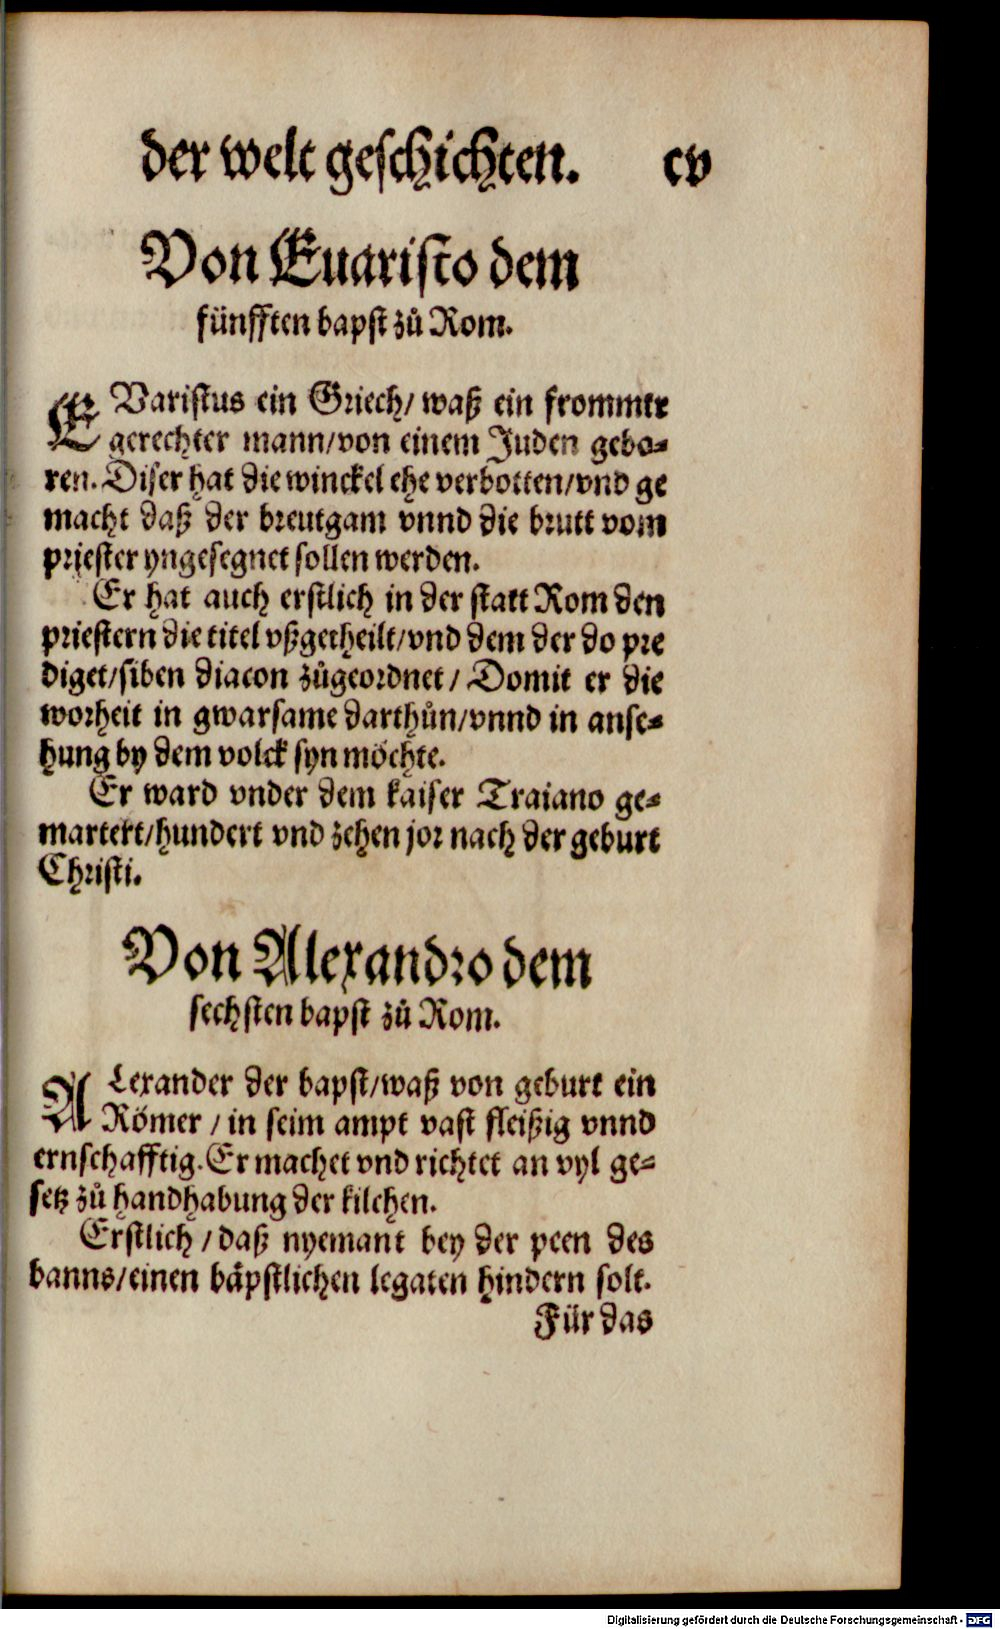 der welt geschichten. cv
Von Euaristo dem
fünfften bapst zů Rom.
EVaristus ein Griech/ waß ein frommer
gerechter mann/von einem Juden gebo-
ren. Diser hat die winckel ehe verbotten/vnd ge
macht daß der breutgam vnnd die brutt vom
priester yngesegnet sollen werden.
Er hat auch erstlich in der statt Rom den
priestern die titel vßgetheilt/vnd dem der do pre
diget/siben diacon zůgeordnet/ Domit er die
worheit in gwarsame darthůn/vnnd in anse-
hung by dem volck syn möchte.
Er ward vnder dem kaiser Traiano ge-
martert/hundert vnd zehen jor nach der geburt
Christi.
Von Alexandro dem
sechsten bapst zů Rom.
ALexander der bapst/waß von geburt ein
Römer / in seim ampt vast fleißig vnnd
ernschafftig. Er machet vnd richtet an vyl ge-
setz zů handhabung der kilchen.
Erstlich / daß nyemant bey der peen des
banns/einen bäpstlichen legaten hindern solt.
Für das
Digitalisierung gefördert durch die Deutsche Forschungsgemeinschaft - DFG